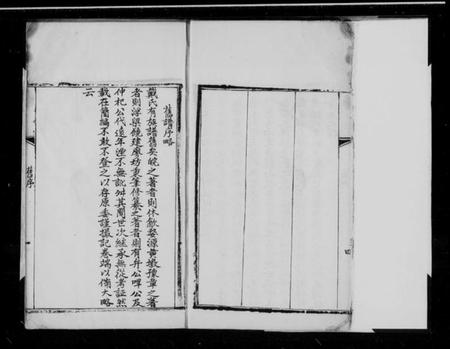 舊譜序略
戴氏有族譜舊矣皖之著者則休歙婺源黃墩豫章之著
者則浮梁饒建廖坊重筆修纂之著者則有弁公暐公及
仲杞公代遠年湮不無訛舛其間世次繼承無從考証然
載在簡編不敢不登之以存原委謹撮記卷端以備大略
云
舊序